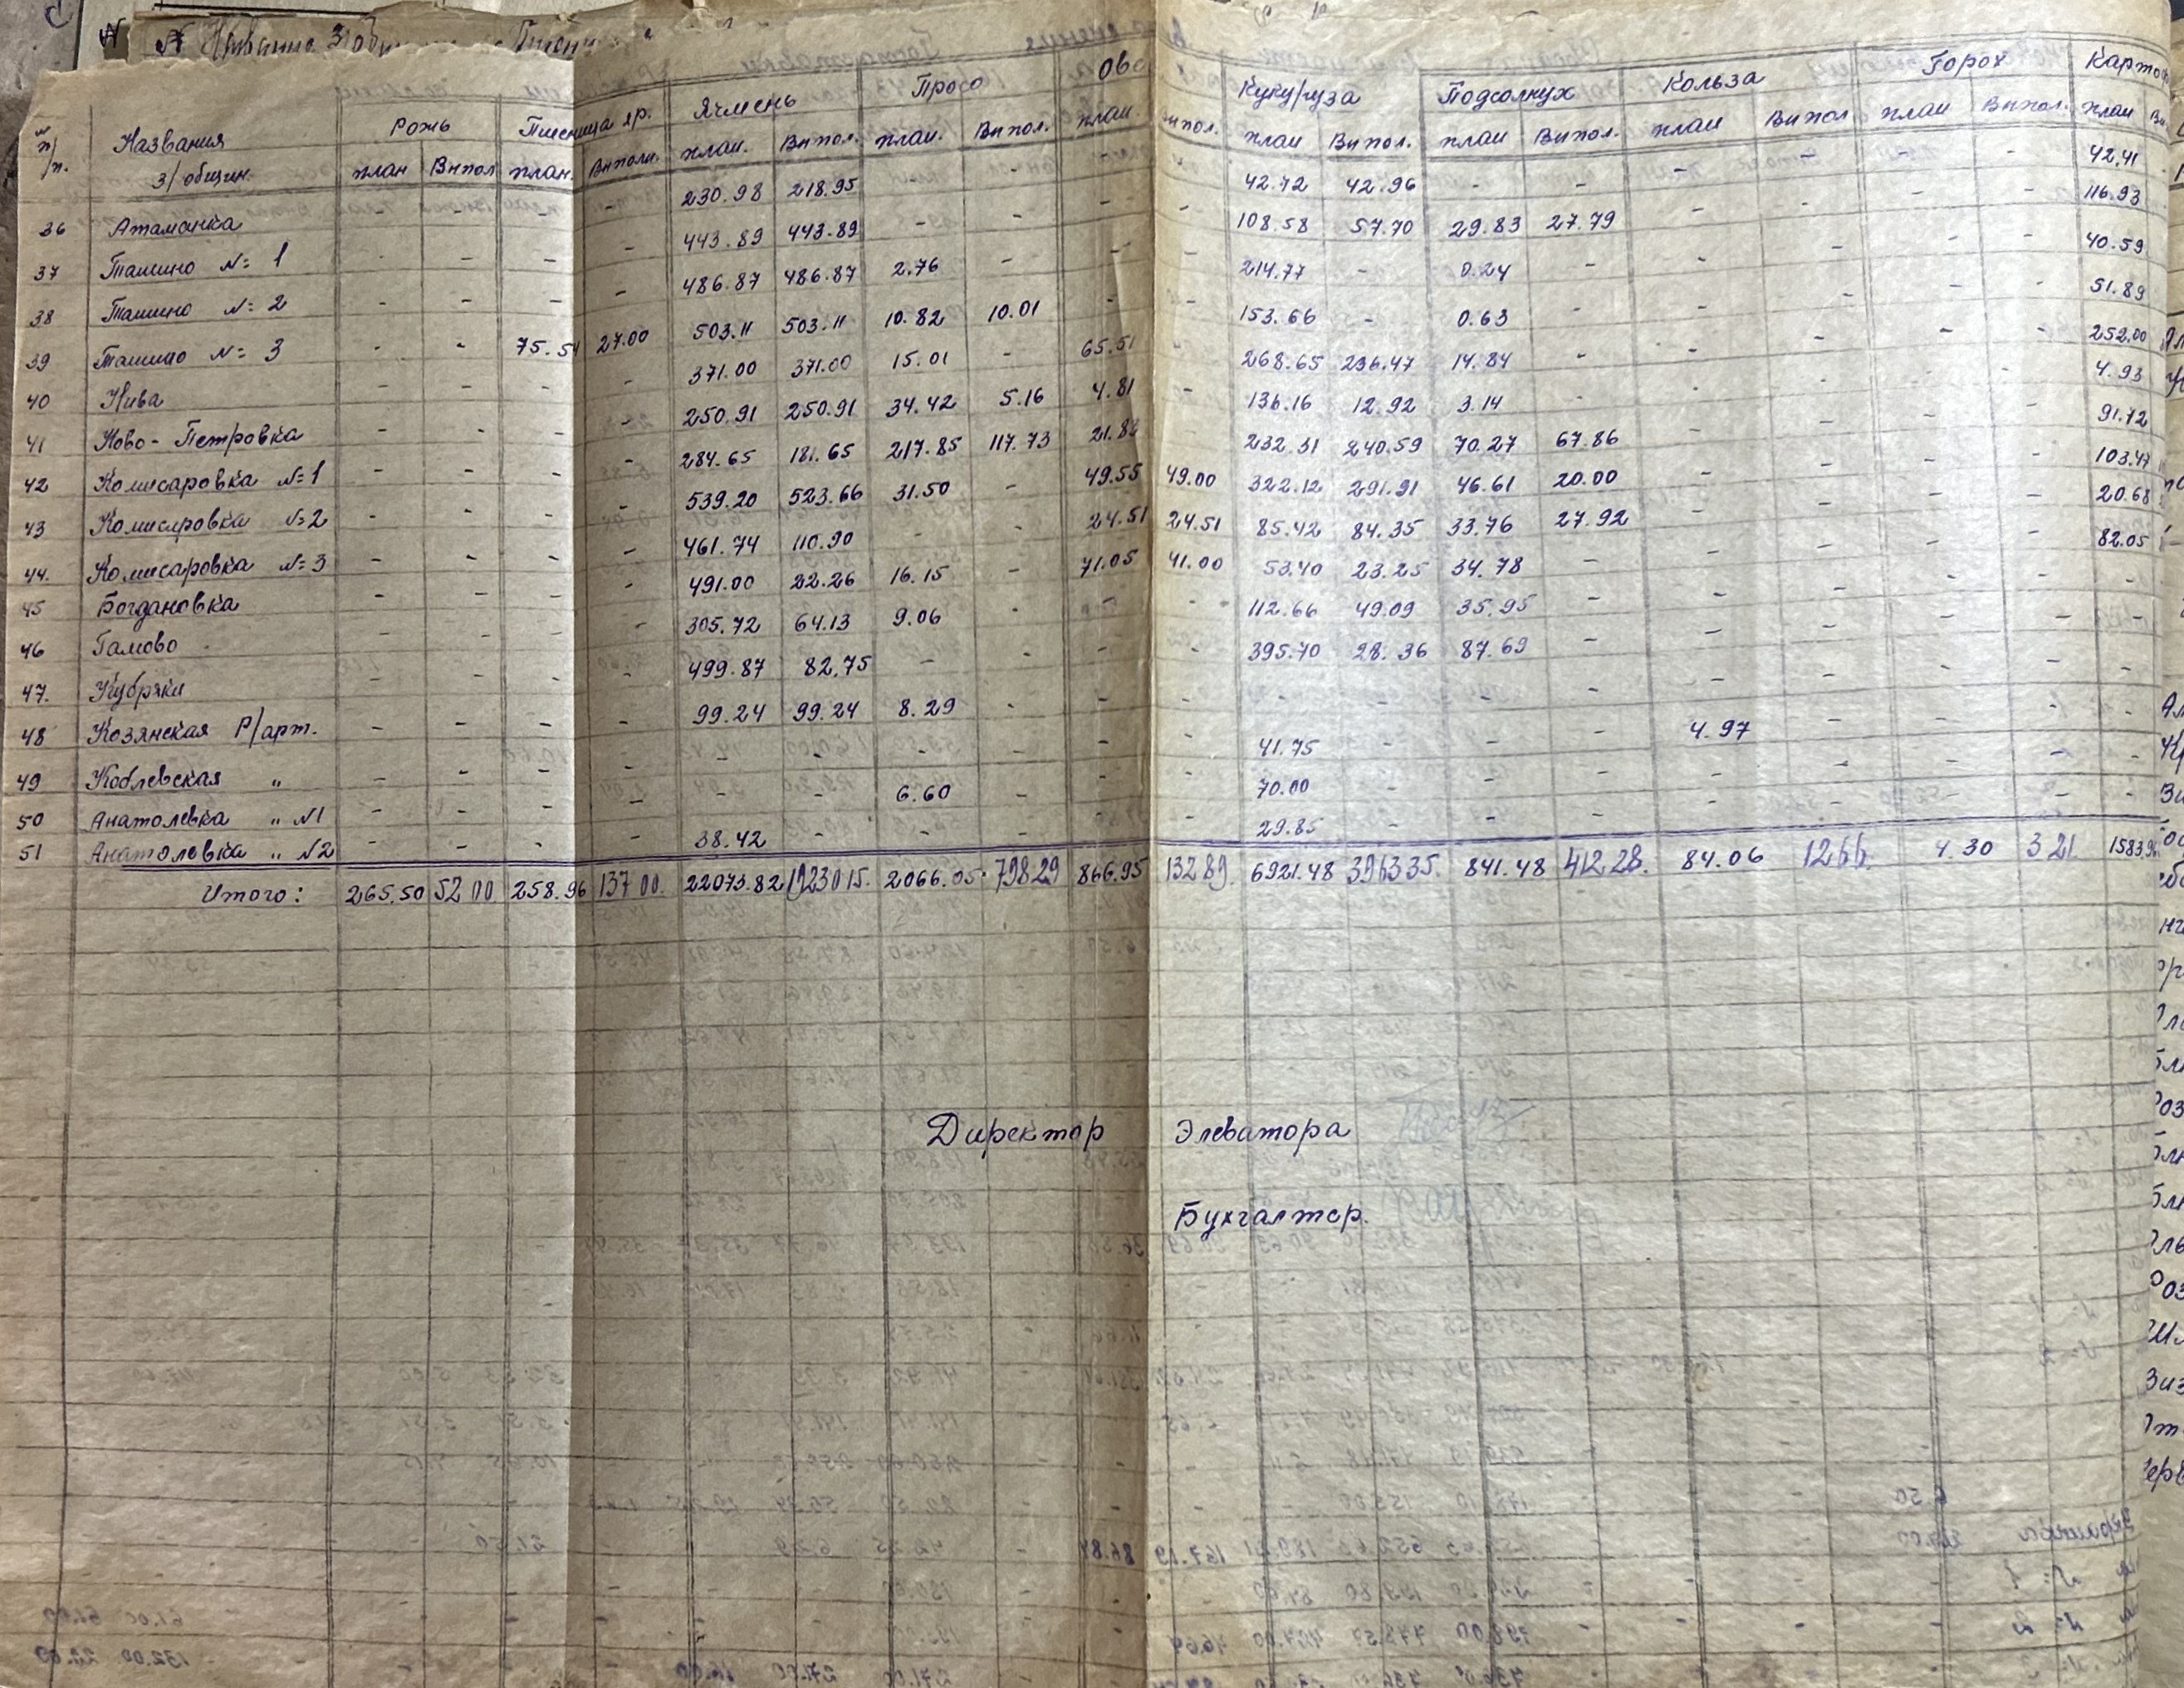 № Название З/общин
№ п/п. Названия З/общин. Рожь Пшеница яр. Ячмень Просо Ове Кукуруза Подсолнух Кользa Горох Карто
план Выпол план. Выполн. план. Выпол. план. Выпол. план. Выпол. план Выпол. план Выпол. план Выпол план Выпол. план
36 Атаманка - - - - 230.98 218.95 - - - - 42.72 42.96 - - - - - - 42.41
37 Ташино №= 1 - - - - 443.89 443.89 - - - - 108.58 57.70 29.83 27.79 - - - - 116.93
38 Ташино №= 2 - - - - 486.87 486.87 2.76 - - - 214.77 - 0.24 - - - - - 40.59
39 Ташино №= 3 - - 75.54 27.00 503.11 503.11 10.82 10.01 - - 153.66 - 0.63 - - - - - 51.89
40 Нива - - - - 371.00 371.00 15.01 - 65.51 - 268.65 236.47 14.84 - - - - - 252.00
41 Ново-Петровка - - - - 250.91 250.91 34.42 5.16 4.81 - 136.16 12.92 3.14 - - - - - 4.93
42 Комисаровка №=1 - - - - 284.65 181.65 217.85 117.73 232.31 240.59 70.27 67.86 - - - - 91.72
43 Комисаровка №=2 - - - - 539.20 523.66 31.50 - 49.55 49.00 322.12 291.91 46.61 20.00 - - - - 103.47
44. Комисаровка №=3 - - - - 461.74 110.90 - - 24.51 24.51 85.42 84.35 33.76 27.92 - - - - 20.68
45 Богдановка - - - - 491.00 22.26 16.15 - 71.05 41.00 53.40 23.25 34.78 - - - - - 82.05
46 Гамово - - - - 305.72 64.13 9.06 - - - 112.66 49.09 35.95 - - - - - -
47. Кубряки - - - - 499.87 82,75 - - - - 395.70 28.36 87.69 - - - - - -
48 Козянская Р/арт. - - - - 99.24 99.24 8.29 - - - - - - - - - - - -
49 Коблевская " - - - - - - - - - - 41.75 - - - 4.97 - - - -
50 Анатолевка " №1 - - - - - - 6.60 - - - 70.00 - - - - - - - -
51 Анатолевка " №2 - - - - 38.42 - - - - - 29.85 - - - - - - - -
Итого: 265.50 52 00 258.96 137 00. 22073.82 19230 15. 2066.05 798 29 866.95 132 89. 6921.48 3963 35. 841.48 412 28. 84.06 12 66. 4.30 3 21. 1583.96
Директор Элеватора
Бухгалтер.